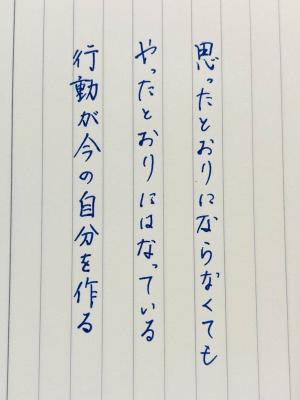 思ったとおりにならなくても
やったとおりにはなっている
行動が今の自分を作る